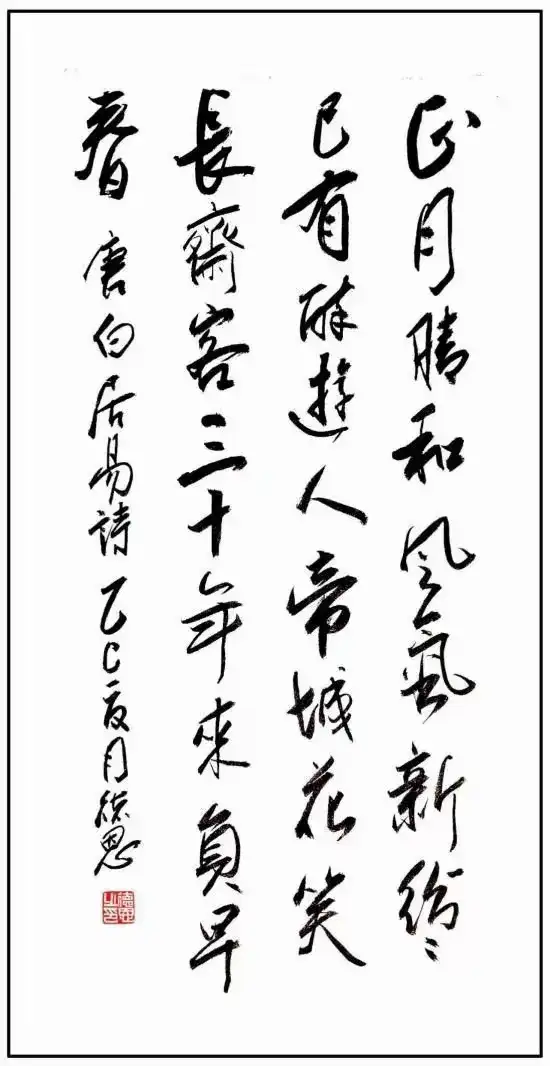 正月晴和風氣新紛〻
已有醉遊人帝城花笑
長齋客三十年來負早
春 唐白居易詩 乙巳夏月德恩
德恩之印